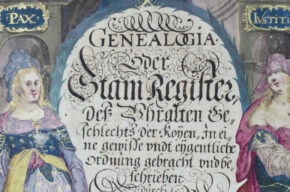 PAX
IVSTITI
GENEALOGIA
Oder
Stam Register,
Deß Vhralten Ge
schlechts der Koÿen, In ei
ne gewisse vndt eÿgentliche
ordnung gebracht vnd be
schrieben
durch